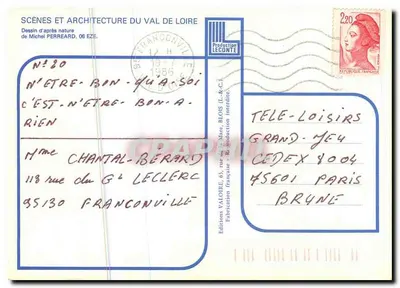 SCÈNES ET ARCHITECTURE DU VAL DE LOIRE
Dessin d'après nature
de Michel PERREARD.
Production
LECONTE
95 FRANCONVILLE
1986
2,20
N° 20
N'ETRE-BON-QU'A-SOI
C'EST-N'ETRE-BON-A-
RIEN
Mme CHANTAL-BERARD
118 rue du Gl LECLERC
95130 FRANCONVILLE
TELE-LOISIRS
GRAND-JEU
CEDEX 2004
75601 PARIS
BRUNE
Editions VALOIRE, BLOIS (L.-&-C.)
Fabrication française Reproduction interdite.